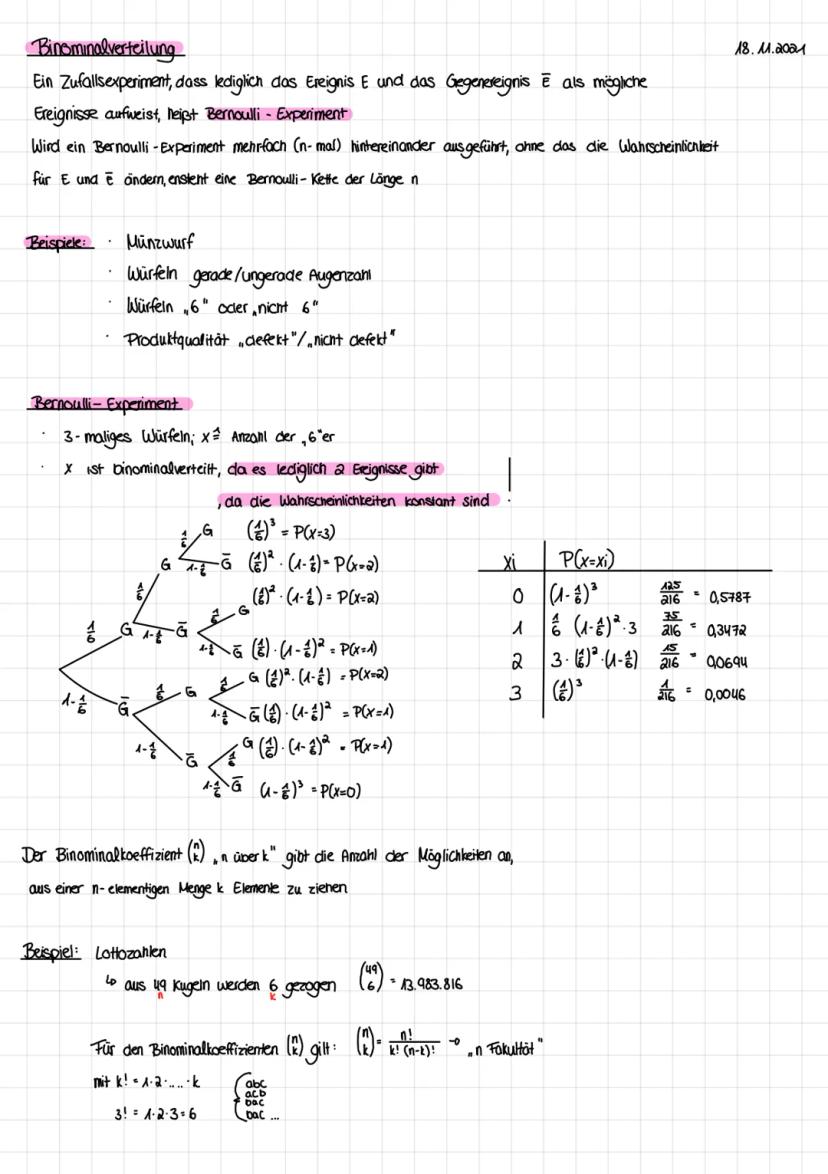 Binominalverteilung
18.11.2021
Ein Zufallsexperiment, dass lediglich das Ereignis E und das Gegenereignis E̅ als mögliche
Ereignisse aufweist, heißt Bernoulli - Experiment
Wird ein Bernoulli - Experiment mehrfach (n- mal) hintereinander ausgeführt, ohne das die Wahrscheinlichkeit
für E und E̅ ändern, ensteht eine Bernoulli - Kette der Länge n
Beispiele: · Münzwurf
· Würfeln gerade/ungerade Augenzahl
· Würfeln „6" oder „nicht 6"
· Produktqualität „defekt"/„nicht defekt"
Bernoulli - Experiment
· 3- maliges Würfeln; x ≙ Anzahl der „6"er
· X ist binominalverteilt, da es lediglich 2 Ereignisse gibt
, da die Wahrscheinlichkeiten konstant sind !
1/6 G (1/6)³ = P(x=3)
G 1-1/6 G̅ (1/6)² · (1-1/6) = P(x=2)
1/6 1/6 G (1/6)² · (1-1/6) = P(x=2)
1/6 G 1-1/6 G̅ 1-1/6 G̅ (1/6) · (1-1/6)² = P(x=1)
1-1/6 G̅ 1/6 G 1/6 G (1/6)² · (1-1/6) = P(x=2)
1-1/6 G̅ (1/6) · (1-1/6)² = P(x=1)
1-1/6 G̅ 1/6 G (1/6) · (1-1/6)² = P(x=1)
1-1/6 G̅ (1-1/6)³ = P(x=0)
xi P(x=xi)
0 (1-1/6)³ 125/216 = 0,5787
1 1/6 (1-1/6)² · 3 75/216 = 0,3472
2 3 · (1/6)² · (1-1/6) 15/216 = 0,0694
3 (1/6)³ 1/216 = 0,0046
Der Binominalkoeffizient (n k) „n über k" gibt die Anzahl der Möglichkeiten an,
aus einer n- elementigen Menge k Elemente zu ziehen
Beispiel: Lottozahlen
↳ aus 49 Kugeln werden 6 gezogen (49 6) = 13.983.816
n k
Für den Binominalkoeffizienten (n k) gilt: (n k) = n! / k! (n-k)! → „n Fakultät"
mit k! = 1·2·.....·k
3! = 1·2·3=6
abc
acb
bac
bac ...